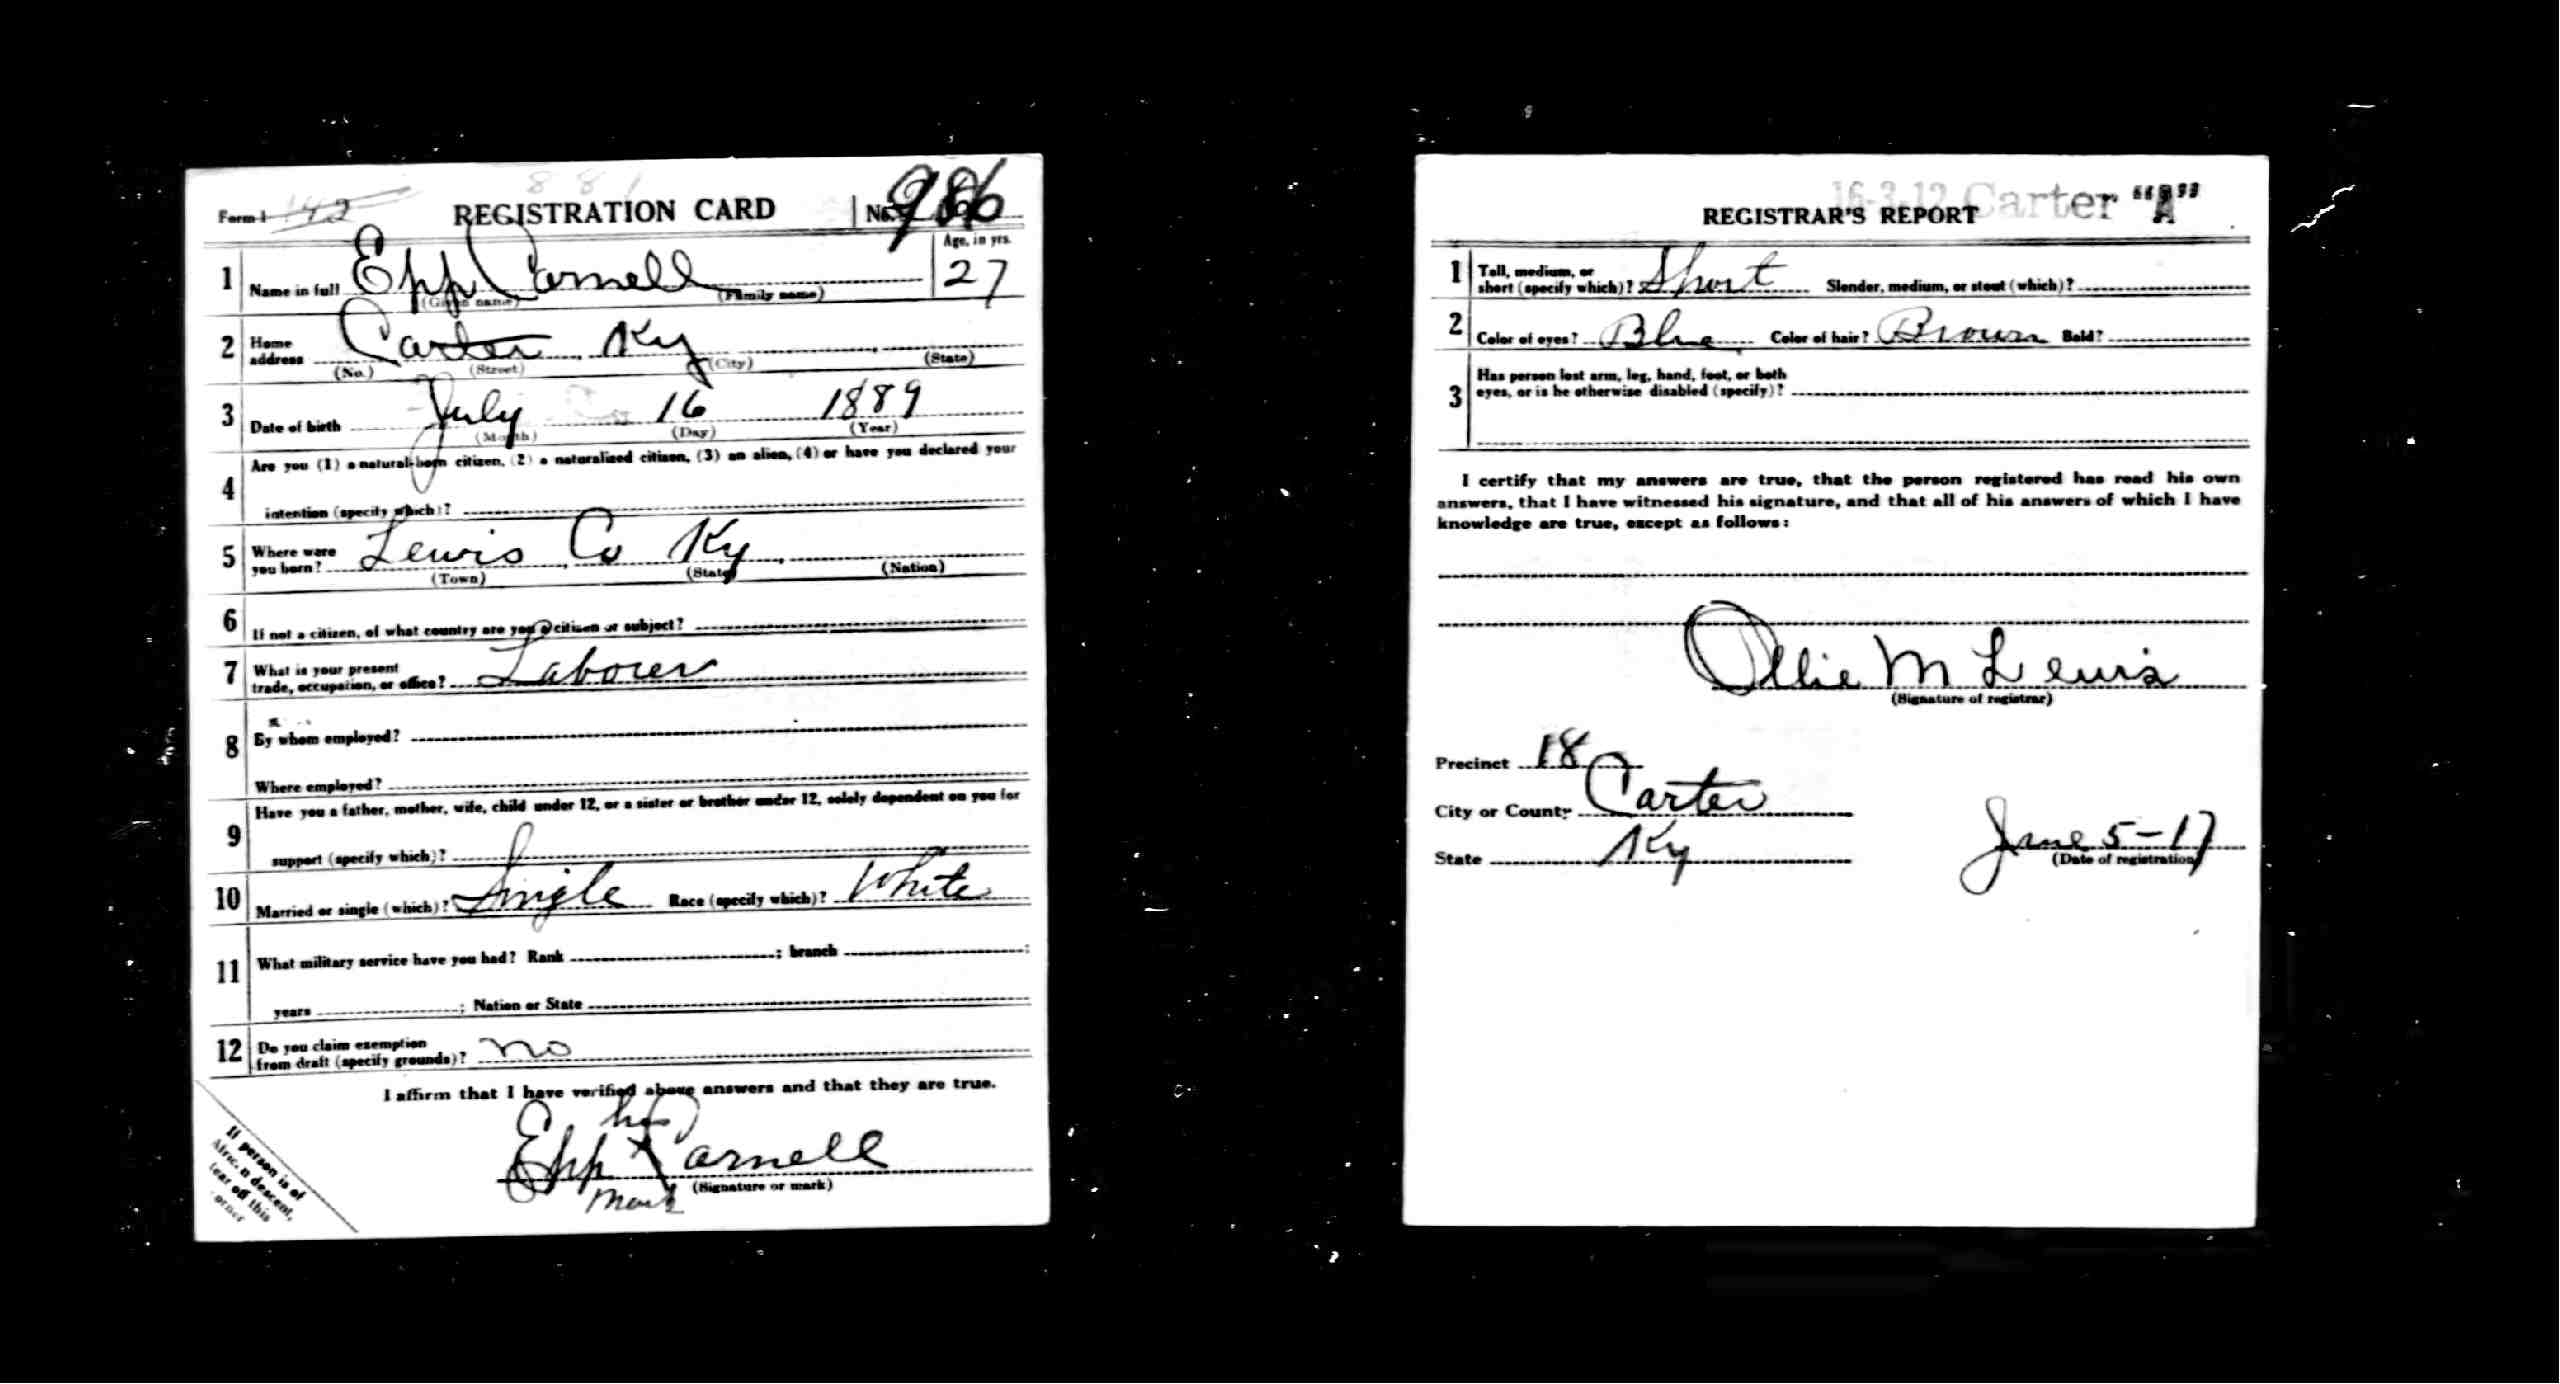 881
Form 1 142 REGISTRATION CARD No.
Age, in yrs.
1 Name in full Epp Carnell 27
(Given name) (Family name)
2 Home address Carter Ky
(No.) (Street) (City) (State)
3 Date of birth July 16 1889
(Month) (Day) (Year)
4 Are you (1) a natural-born citizen, (2) a naturalized citizen, (3) an alien, (4) or have you declared your
intention (specify which)?
5 Where were you born? Lewis Co Ky
(Town) (State) (Nation)
6 If not a citizen, of what country are you a citizen or subject?
7 What is your present trade, occupation, or office? Laborer
8 By whom employed?
Where employed?
9 Have you a father, mother, wife, child under 12, or a sister or brother under 12, solely dependent on you for
support (specify which)?
10 Married or single (which)? Single Race (specify which)? White
11 What military service have you had? Rank ; branch ;
years ; Nation or State
12 Do you claim exemption from draft (specify grounds)? no
I affirm that I have verified above answers and that they are true.
his
Epp x Carnell
mark (Signature or mark)
If person is of
African descent,
tear off this
corner
16-3-12 Carter "A"
REGISTRAR'S REPORT
1 Tall, medium, or short (specify which)? Short Slender, medium, or stout (which)?
2 Color of eyes? Blue Color of hair? Brown Bald?
3 Has person lost arm, leg, hand, foot, or both
eyes, or is he otherwise disabled (specify)?
I certify that my answers are true, that the person registered has read his own
answers, that I have witnessed his signature, and that all of his answers of which I have
knowledge are true, except as follows:
Ollie M Lewis
(Signature of registrar)
Precinct 18
City or County Carter
State Ky
June 5-17
(Date of registration)